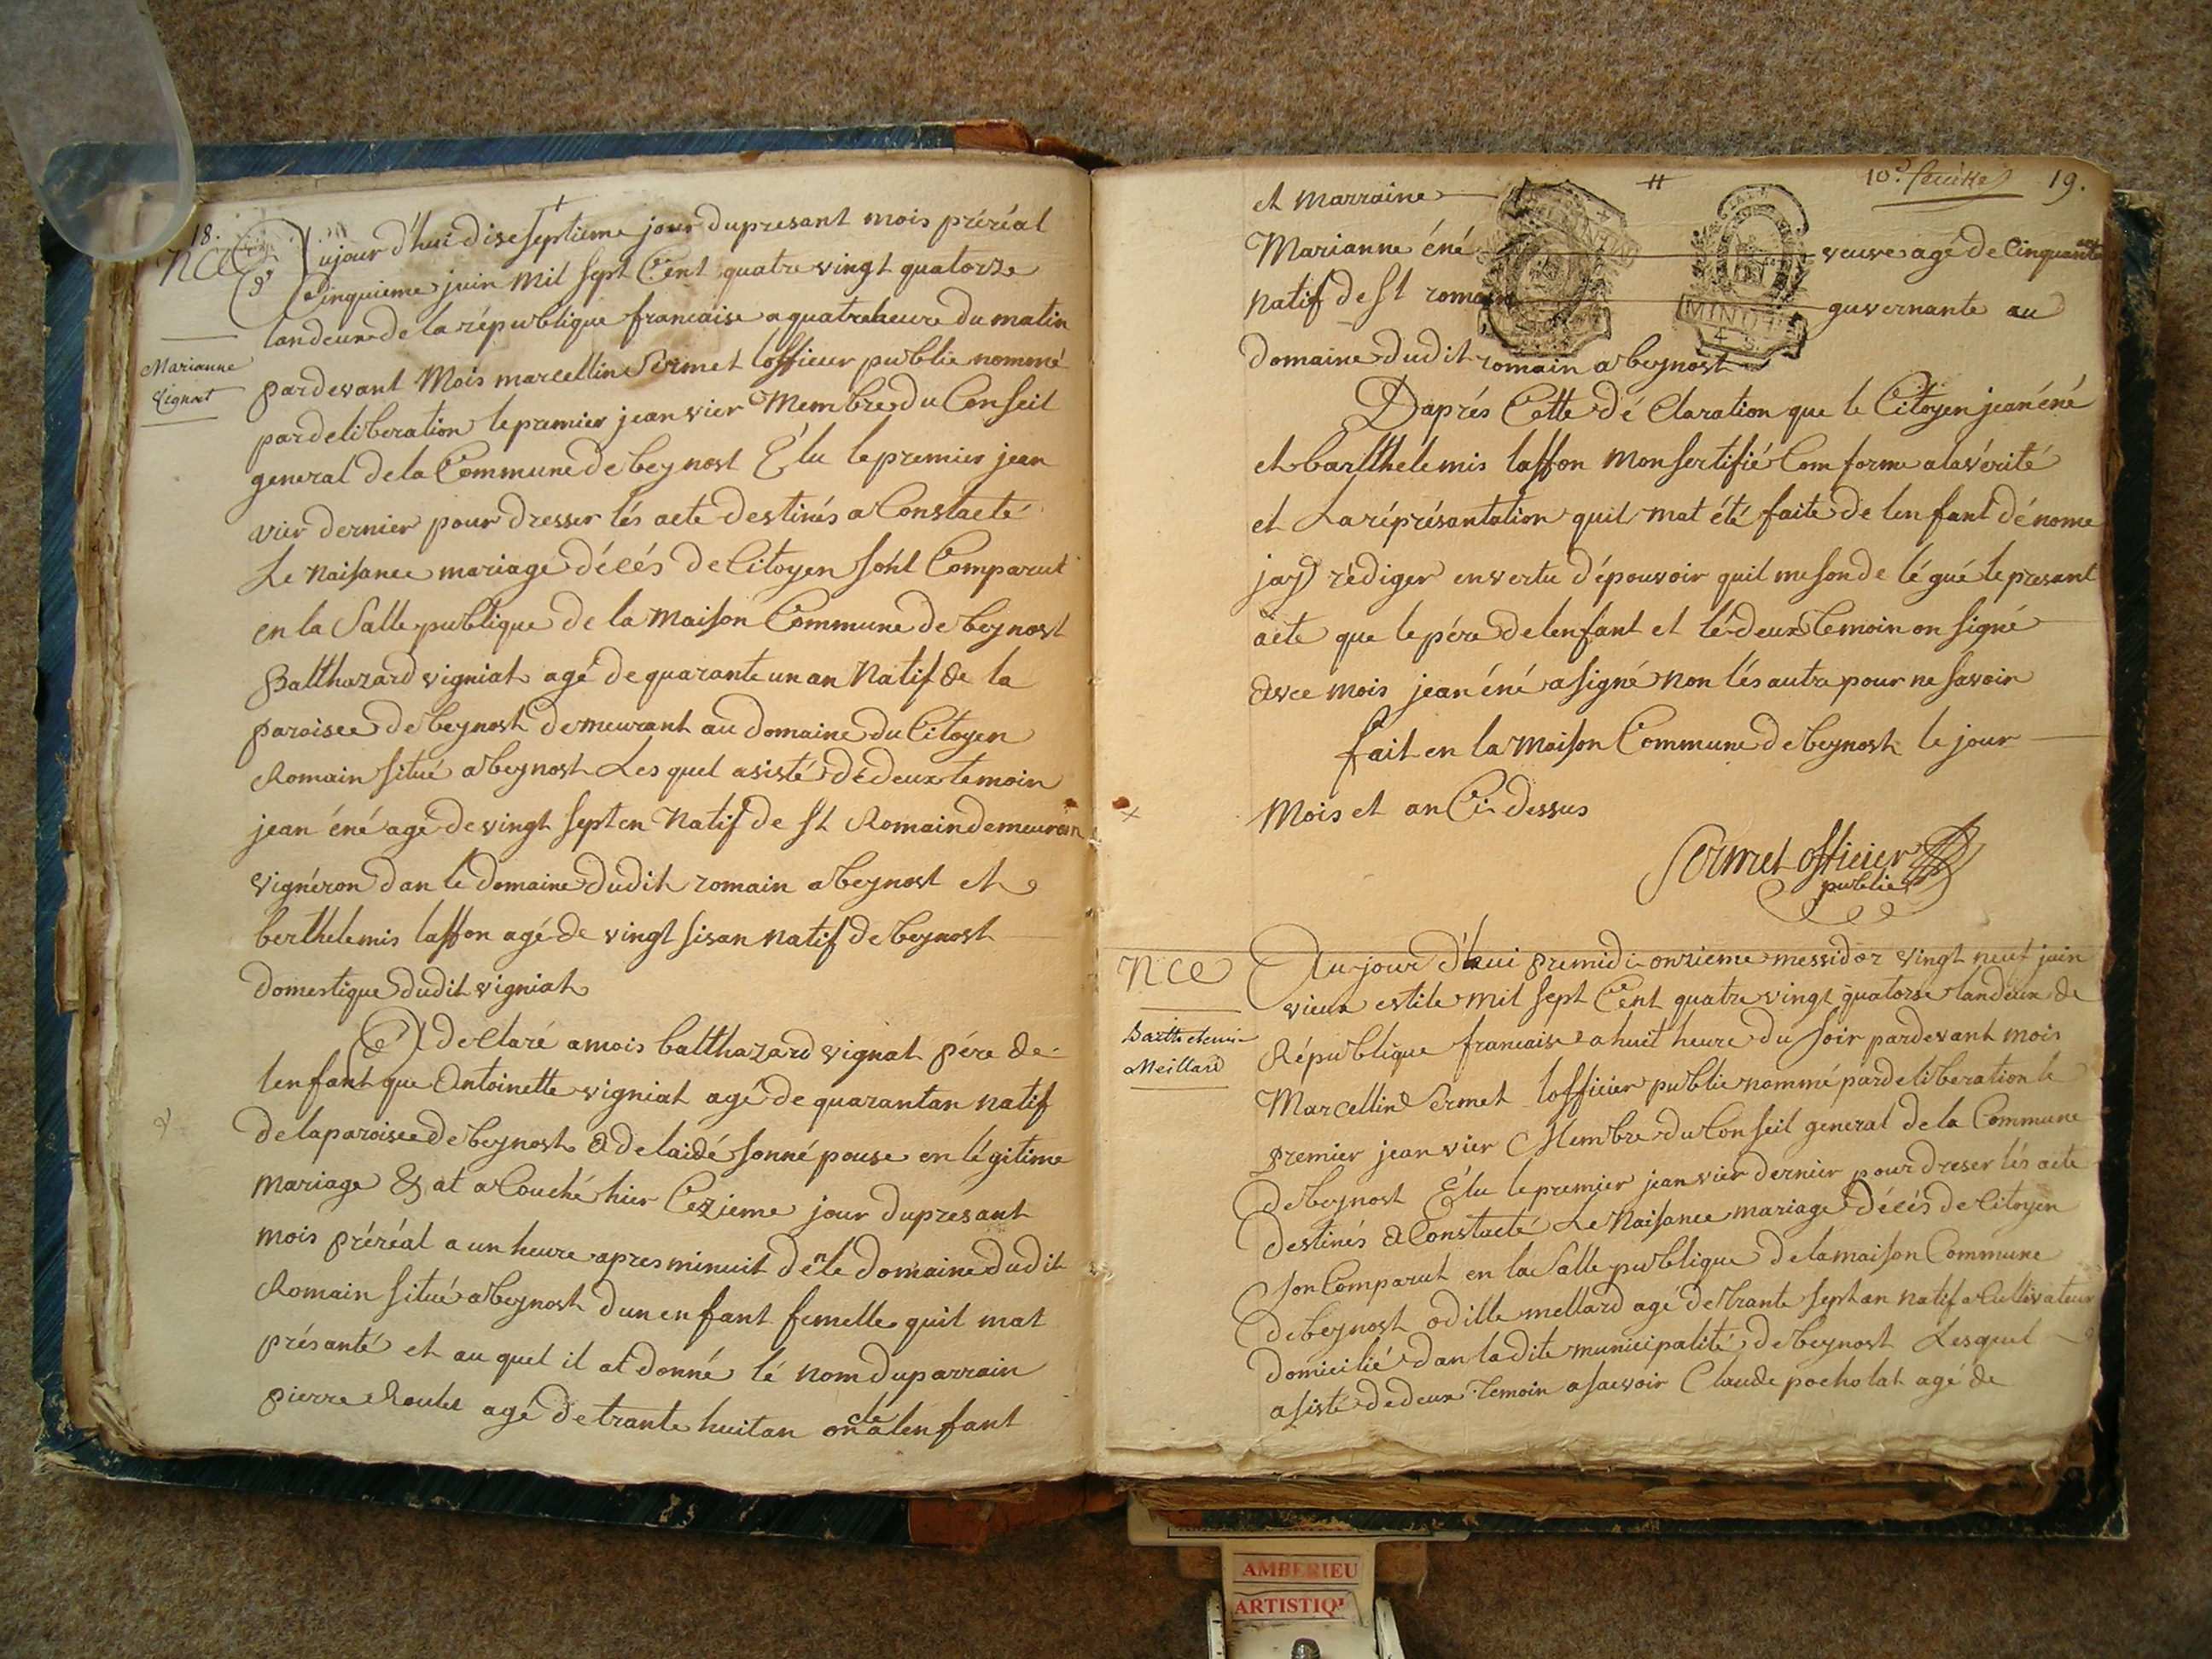 18.
nce
Marianne
Vignat
Aujour d'hui diseseptieme jour dupresant mois préréal
Cinquieme juin mil sept Cent quatre vingt quatorze
landeuxe de la république francaise a quatre heure du matin
pardevant Mois marcellin Sermet lofficier public nommé
pardeliberation le premier jeanvier Membre du Conseil
general de la Commune de beynost Élu le premier jean
vier dernier pour dresser lés acte destinés a Constacté
Le naisance mariage décés de Citoyen sont Comparut
en la Salle publique de la maison Commune de beynost
Balthazard vigniat agé de quarante un an Natif de la
paroisee de beynost demeurant au domaine du Citoyen
Romain situé a beynost Les quel asisté dédeux temoin
jean éné agé de vingt septen Natif de St Romain demeuran
vignéron dan le domaine dudit romain a beynost et
berthelemis laffon agé de vingt sisan natif de beynost
domestique dudit vigniat
A declaré a mois balthazard vignat pére de
lenfant que Antoinette vigniat agé de quarantan natif
de laparoisee de beynost Adelaidé sonné pouse en légitime
mariage & at a Couché hier Cezieme jour dupresant
mois préréal a un heure apres minuit den le domaine dudit
Romain situé a beynost dun enfant femelle quil mat
présanté et au quel il at donné lé nom duparrain
pierre Roulet agé de trante huitan oncle a lenfant
10e feuillet 19.
et marraine
Marianne éné veuve agé de Cinquante an
natif de St romain guvernante au
MINUTE
domaine dudit romain a beynost
Daprés Cette déClaration que le Citoyen jean éné
et barlthelemis laffon mon sertifié Com forme a la vérité
et La réprésantation quil mat été faite de lenfant dénome
jay rédiger en vertu dépouvoir quil me son de légué le presant
acte que le pére de lenfant et lé deux temoin on signé
avce mois jean éné a signé non lés autre pour ne savoir
fait en la maison Commune de beynost le jour
Mois et an Ci-dessus
Sermet officier
public
nce
Barthelemi
Meillard
Au jour d'hui premidi onzieme messidor vingt neuf juin
vieux estile mil sept Cent quatre vingt quatorse landeux de
République francaise a huit heure du soir pardevant mois
Marcellin Sermet lofficier public nommé pardeliberation le
premier jeanvier Membre du Conseil general de la Commune
de beynost Élu le premier jeanvier dernier pour dreser lés acte
destinés a Constacté Le Naisance mariage décés de Citoyen
son Comparut en la Salle publique de la maison Commune
de beynost odille mellard agé de trante septan natif a Cultivateur
domicilié dan ladite municipalité de beynost Lesquel
asisté de deux temoin a saevoir Claude pocholat agé de
AMBERIEU
ARTISTIQ